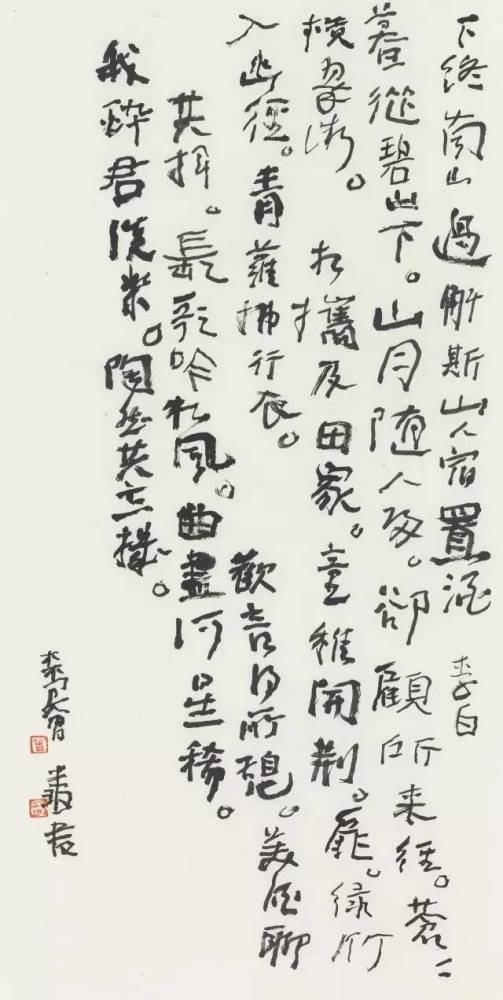 下终南山過斛斯山人宿置酒 李白
暮從碧山下。山月随人歸。卻顧所来徑。蒼〻
横翠微。相攜及田家。童稚開荆。扉。绿竹
入幽徑。青蘿拂行衣。歡言得所憩。美酒聊
共揮。長歌吟松風。曲盡河星稀。
我醉君復樂。陶然共忘機。